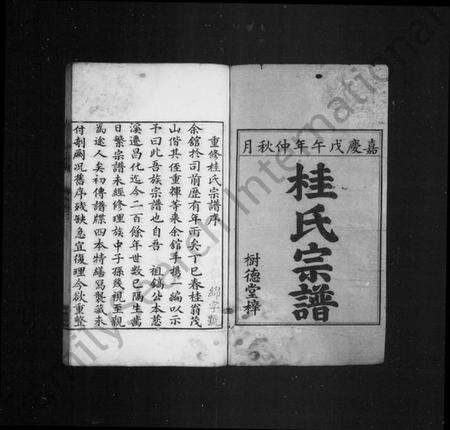 嘉慶戊午年仲秋月
桂氏宗譜
樹德堂梓
重修桂氏宗譜序
余舘於司前歷有年而矣丁巳春桂翁茂
山偕其侄重揮等來余舘手携一編以示
予曰此吾族宗譜也自吾 祖鎬公本慈
溪遷昌化迄今二百餘年世數已隔生齒
日繁宗譜未經修理族中子孫幾視至親
為途人矣初傳譜牒四本特繕寫製藏未
付剞劂况舊序殘缺急宜復理今欲重整
綿字號
Family Search International